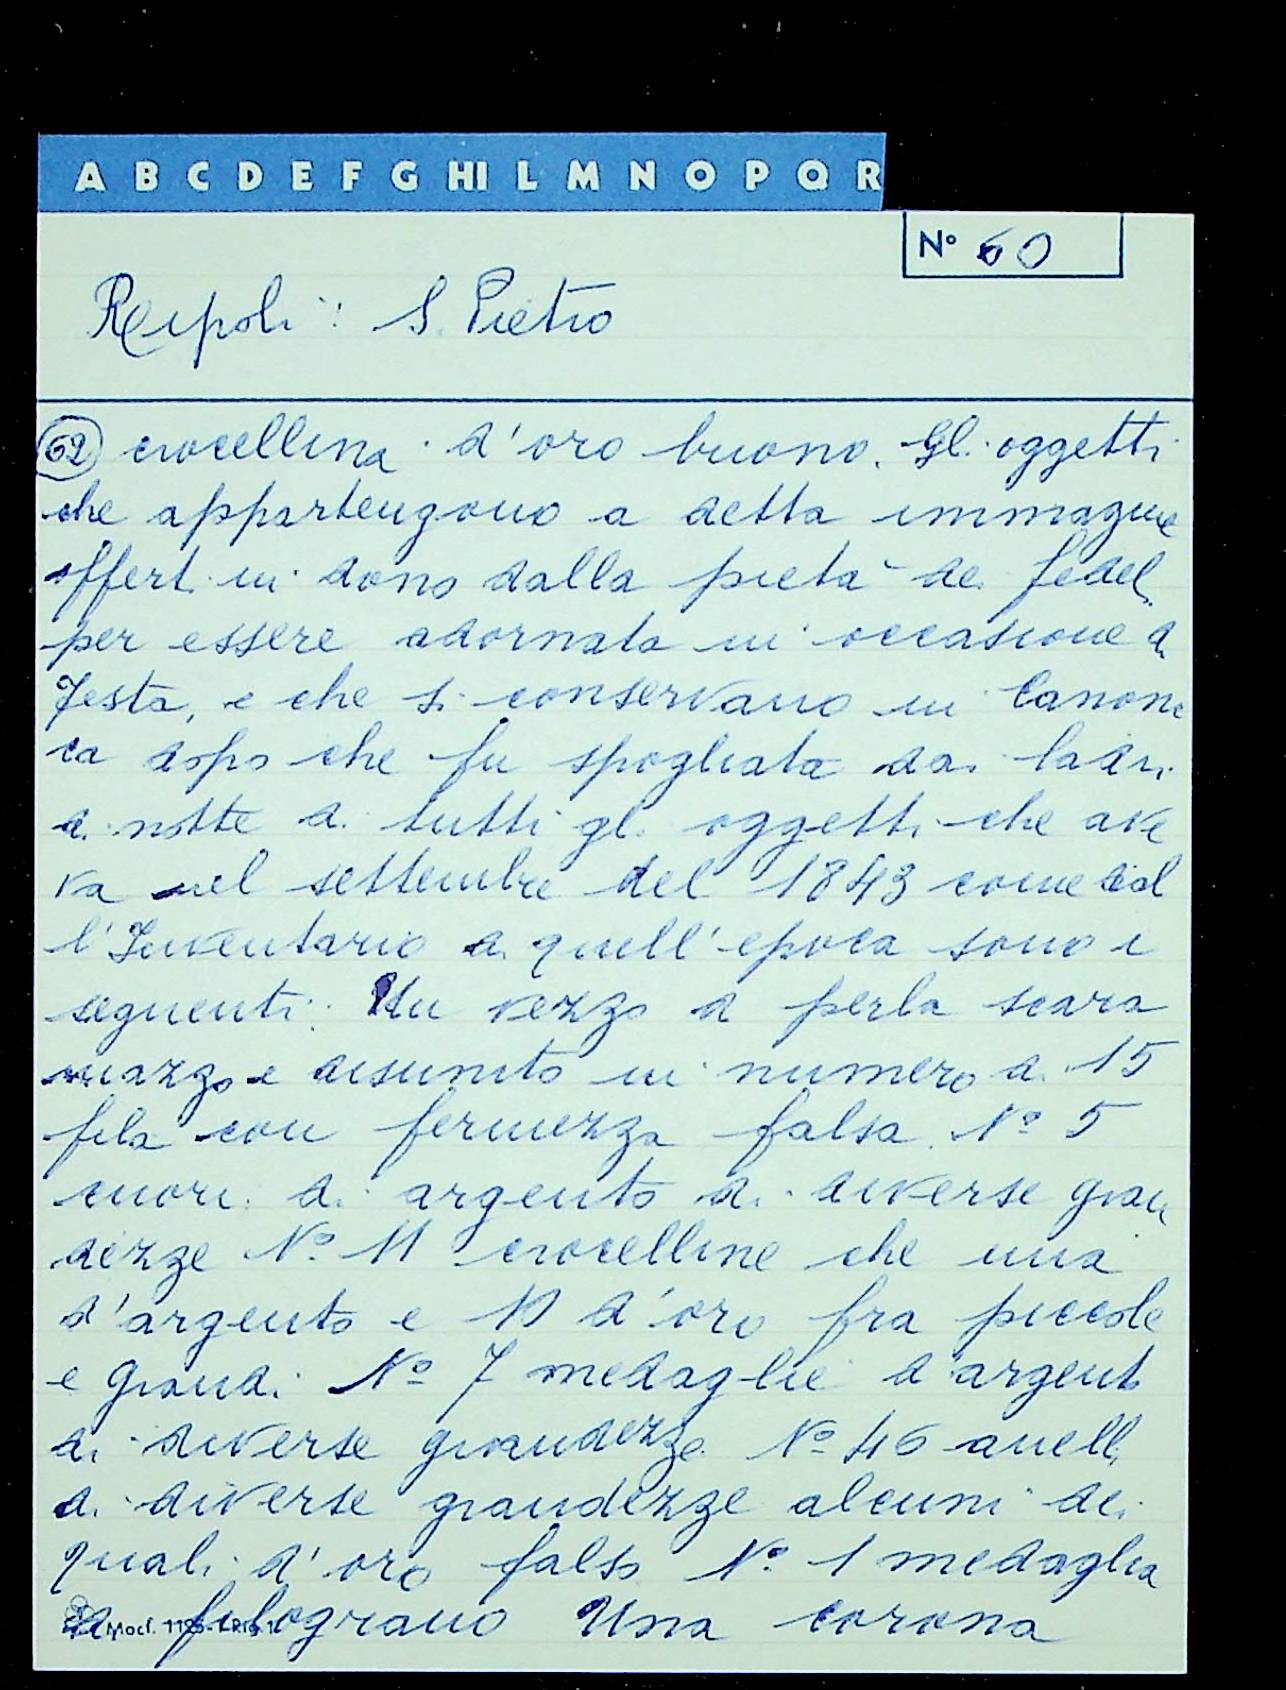 A B C D E F G HI L M N O P Q R
Nº 60
Ripoli: S. Pietro
62 crocellina d'oro buono. Gli oggetti
che appartengono a detta immagine
offerti in dono dalla pietà dei fedeli
per essere adornata in occasione di
festa, e che si conservano in Canoni
ca dopo che fu spogliata dai ladri
di notte di tutti gli oggetti che ave
va nel settembre del 1843 come dal
l'Inventario di quell'epoca sono i
seguenti: Un vezzo di perla scara
mazzo e disunito in numero di 15
fila con fermezza falsa. Nº 5
cuori di argento di diverse gran
dezze Nº 11 crocelline che una
d'argento e 10 d'oro fra piccole
e grandi Nº 7 medaglie d'argento
di diverse grandezze Nº 46 anelli
di diverse grandezze alcuni dei
quali d'oro falso Nº 1 medaglia
filograno Una corona
Mod.